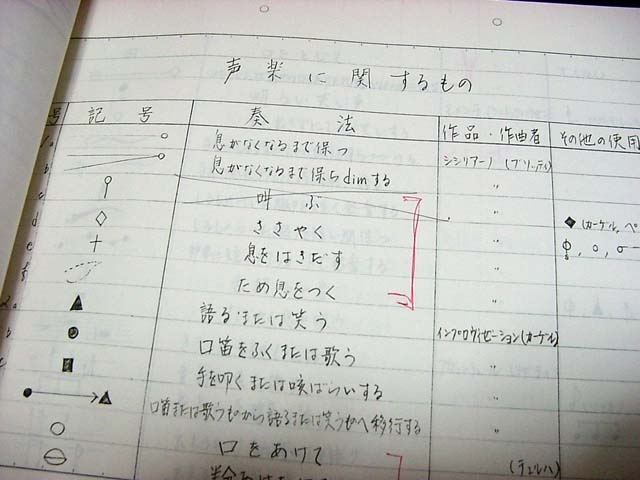 声楽に関するもの
号 記号 奏法 作品・作曲者 その他の使用
a 息がなくなるまで保つ シシリアーノ(ブソッティ)
b 息がなくなるまで保ちdimする 〃
c 叫ぶ 〃
d ささやく 〃 (カーゲル,ペ
e 息をはきだす 〃
f ため息をつく 〃
a 語るまたは笑う インプロヴィゼーション(カーゲル)
b 口笛をふくまたは歌う 〃
c 手を叩くまたは咳ばらいする 〃
口笛または歌うものから語るまたは笑うものへ移行する 〃
口をあけて (デュルハ